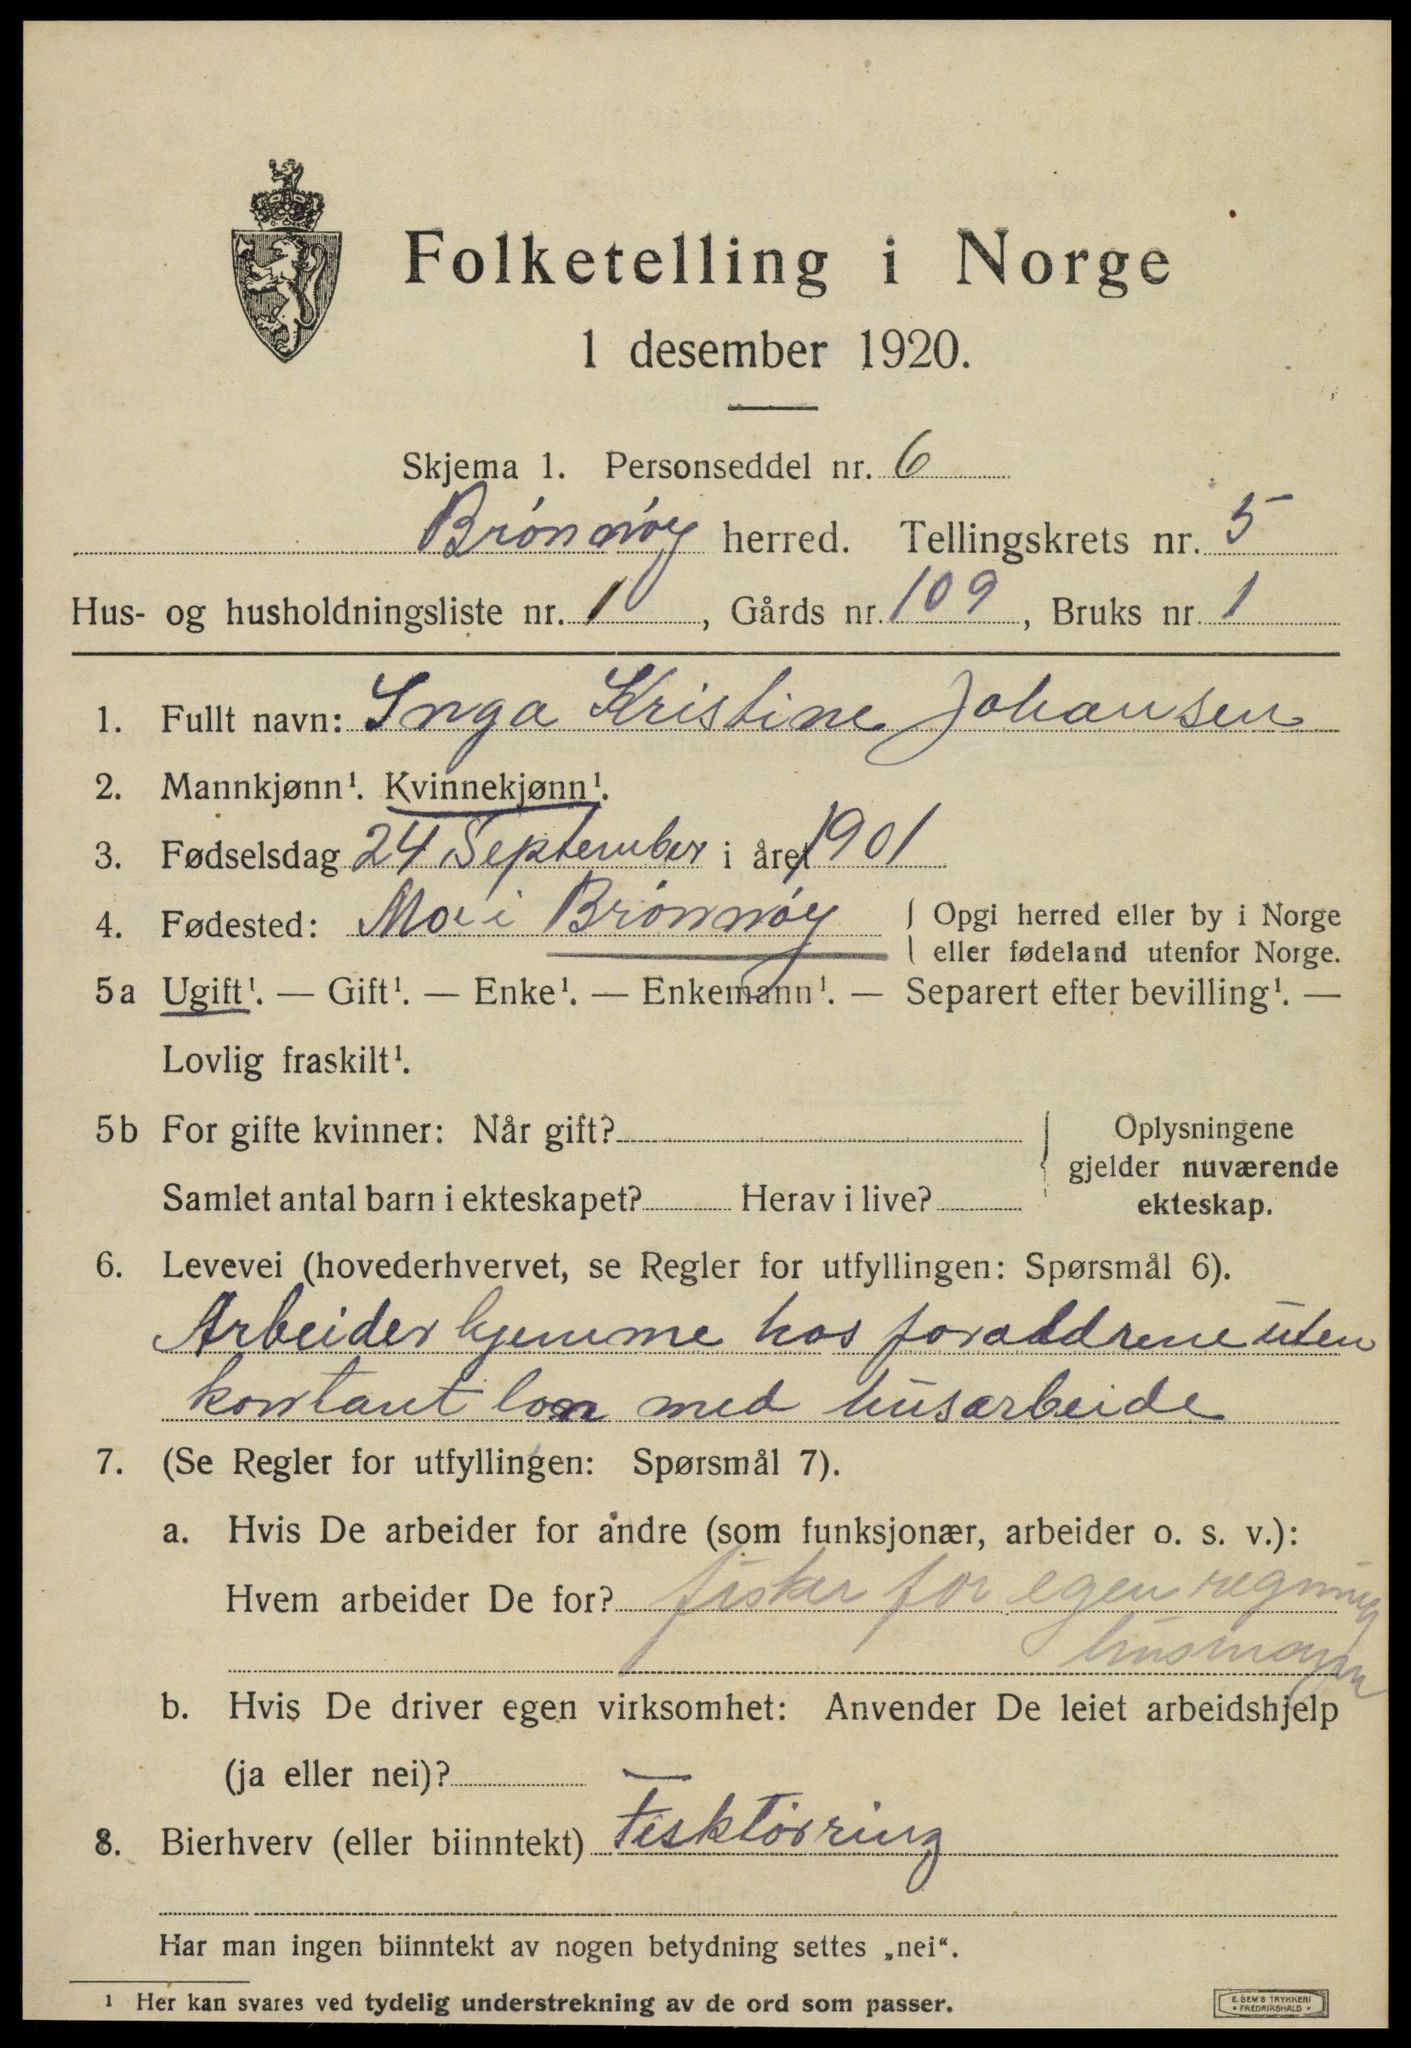 Folketelling i Norge
1 desember 1920.
Skjema 1. Personseddel nr. 6
Brönnöy herred. Tellingskrets nr. 5
Hus- og husholdningsliste nr. 1, Gårds nr. 109, Bruks nr 1
1. Fullt navn: Inga Kristine Johansen
2. Mannkjønn¹. Kvinnekjønn¹.
3. Fødselsdag 24 September i året 1901
4. Fødested: Mo i Brönnöy { Opgi herred eller by i Norge
eller fødeland utenfor Norge.
5a Ugift¹. — Gift¹. — Enke¹. — Enkemann¹. — Separert efter bevilling¹. —
Lovlig fraskilt¹.
5b For gifte kvinner: Når gift? { Oplysningene
gjelder nuværende
Samlet antal barn i ekteskapet? Herav i live? ekteskap.
6. Levevei (hovederhvervet, se Regler for utfyllingen: Spørsmål 6).
Arbeider hjemme hos foraldrene uten
kontant lon med husarbeide
7. (Se Regler for utfyllingen: Spørsmål 7).
a. Hvis De arbeider for andre (som funksjonær, arbeider o. s. v.):
Hvem arbeider De for? fisker for egen regning
b. Hvis De driver egen virksomhet: Anvender De leiet arbeidshjelp
(ja eller nei)?
8. Bierhverv (eller biinntekt) Fisktörring
Har man ingen biinntekt av nogen betydning settes „nei“.
¹ Her kan svares ved tydelig understrekning av de ord som passer.
E. SEM'S TRYKKERI
FREDRIKSHALD